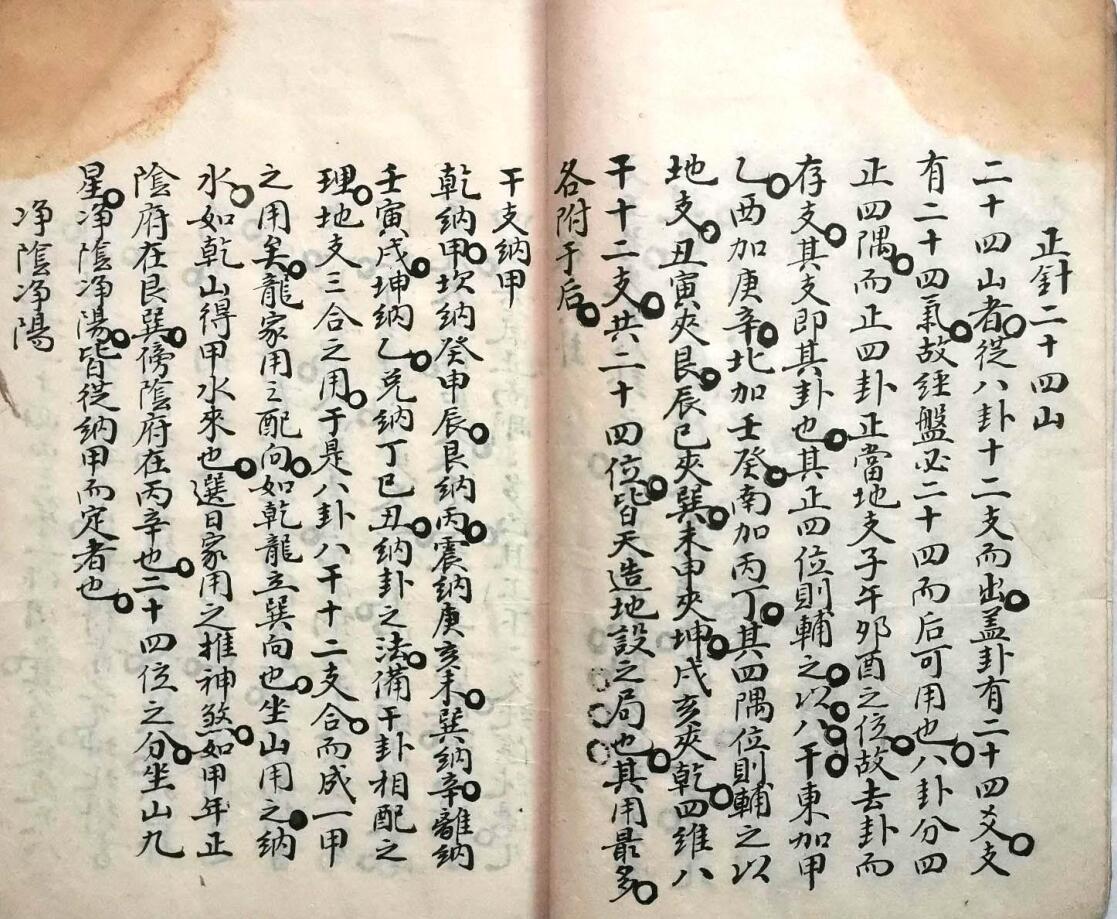 正針二十四山
二十四山者從八卦十二支而出盖卦有二十四爻支
有二十四氣故經盤必二十四而后可用也八卦分四
正四隅而正四卦正當地支子午夘酉之位故去卦而
存支其支即其卦也其正四位則輔之以八干東加甲
乙西加庚辛北加壬癸南加丙丁其四隅位則輔之以
地支丑寅夾艮辰巳夾巽未申夾坤戌亥夾乾四維八
干十二支共二十四位皆天造地設之局也其用最多
各附于后
干支納甲
乾納甲坎納癸申辰艮納丙震納庚亥未巽納辛離納
壬寅戌坤納乙兌納丁巳丑納卦之法備干卦相配之
理地支三合之用于是八卦八干十二支合而成一甲
之用矣龍家用之配向如乾龍立巽向也坐山用之納
水如乾山得甲水來也選日家用之推神煞如甲年正
陰府在艮巽傍陰府在丙辛也二十四位之分坐山九
星净陰净陽皆從納甲而定者也
净陰净陽